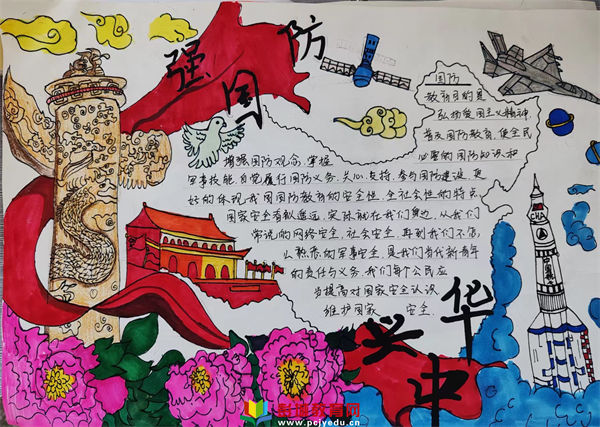 强国防
国防
教育目的是
弘扬爱国主义精神
普及国防教育,使全民
必要的国防知识和
增强国防观念,掌握
军事技能,自觉履行国防义务,关心,支持,参与国防建设,更
好的体现我国国防教育的安全性,全社会性的特点
国家安全看似遥远,实际就在我们身边,从我们
常说的网络安全,社会安全,再到我们不怎
么熟悉的军事安全,是我们当代新青年
的责任与义务,我们每个公民应
当提高对国家安全认识
维护国家 安全
兴中华
CHA
彭建教育网
www.pcjyedu.cn